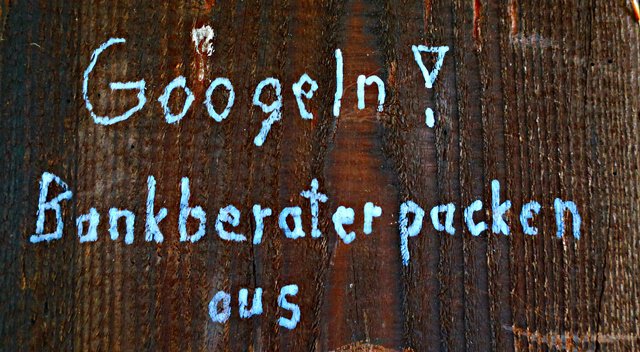 Googeln!
Bankberater packen
aus